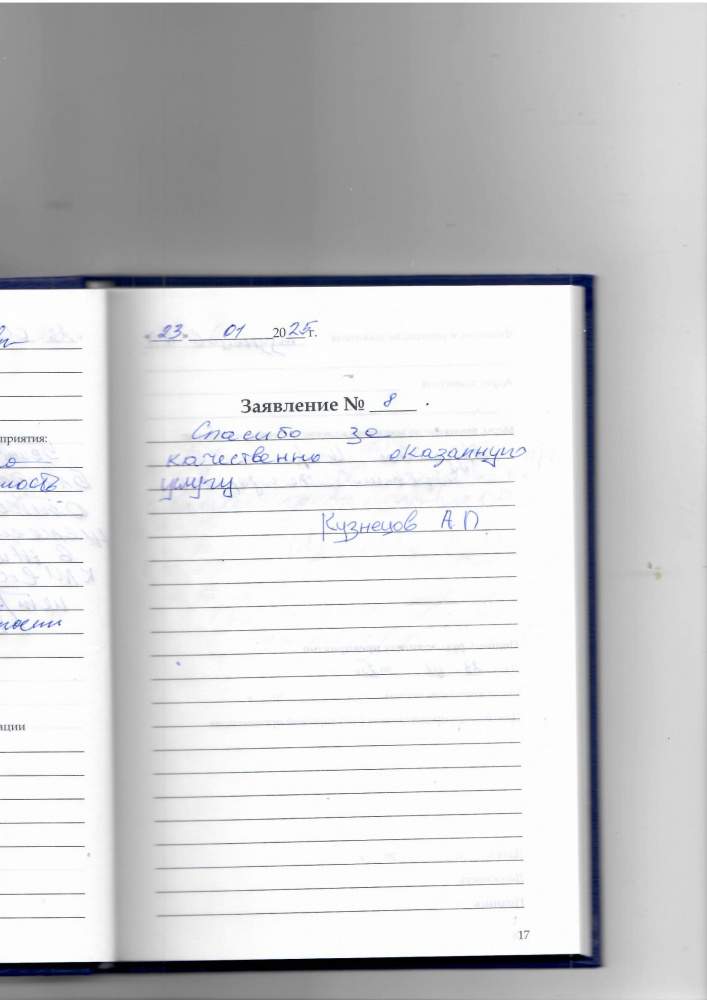 приятия:
мость
ации
«23» 01 2025 г.
Заявление № 8
Спасибо за
качественно оказанную
услугу
Кузнецов А П
17